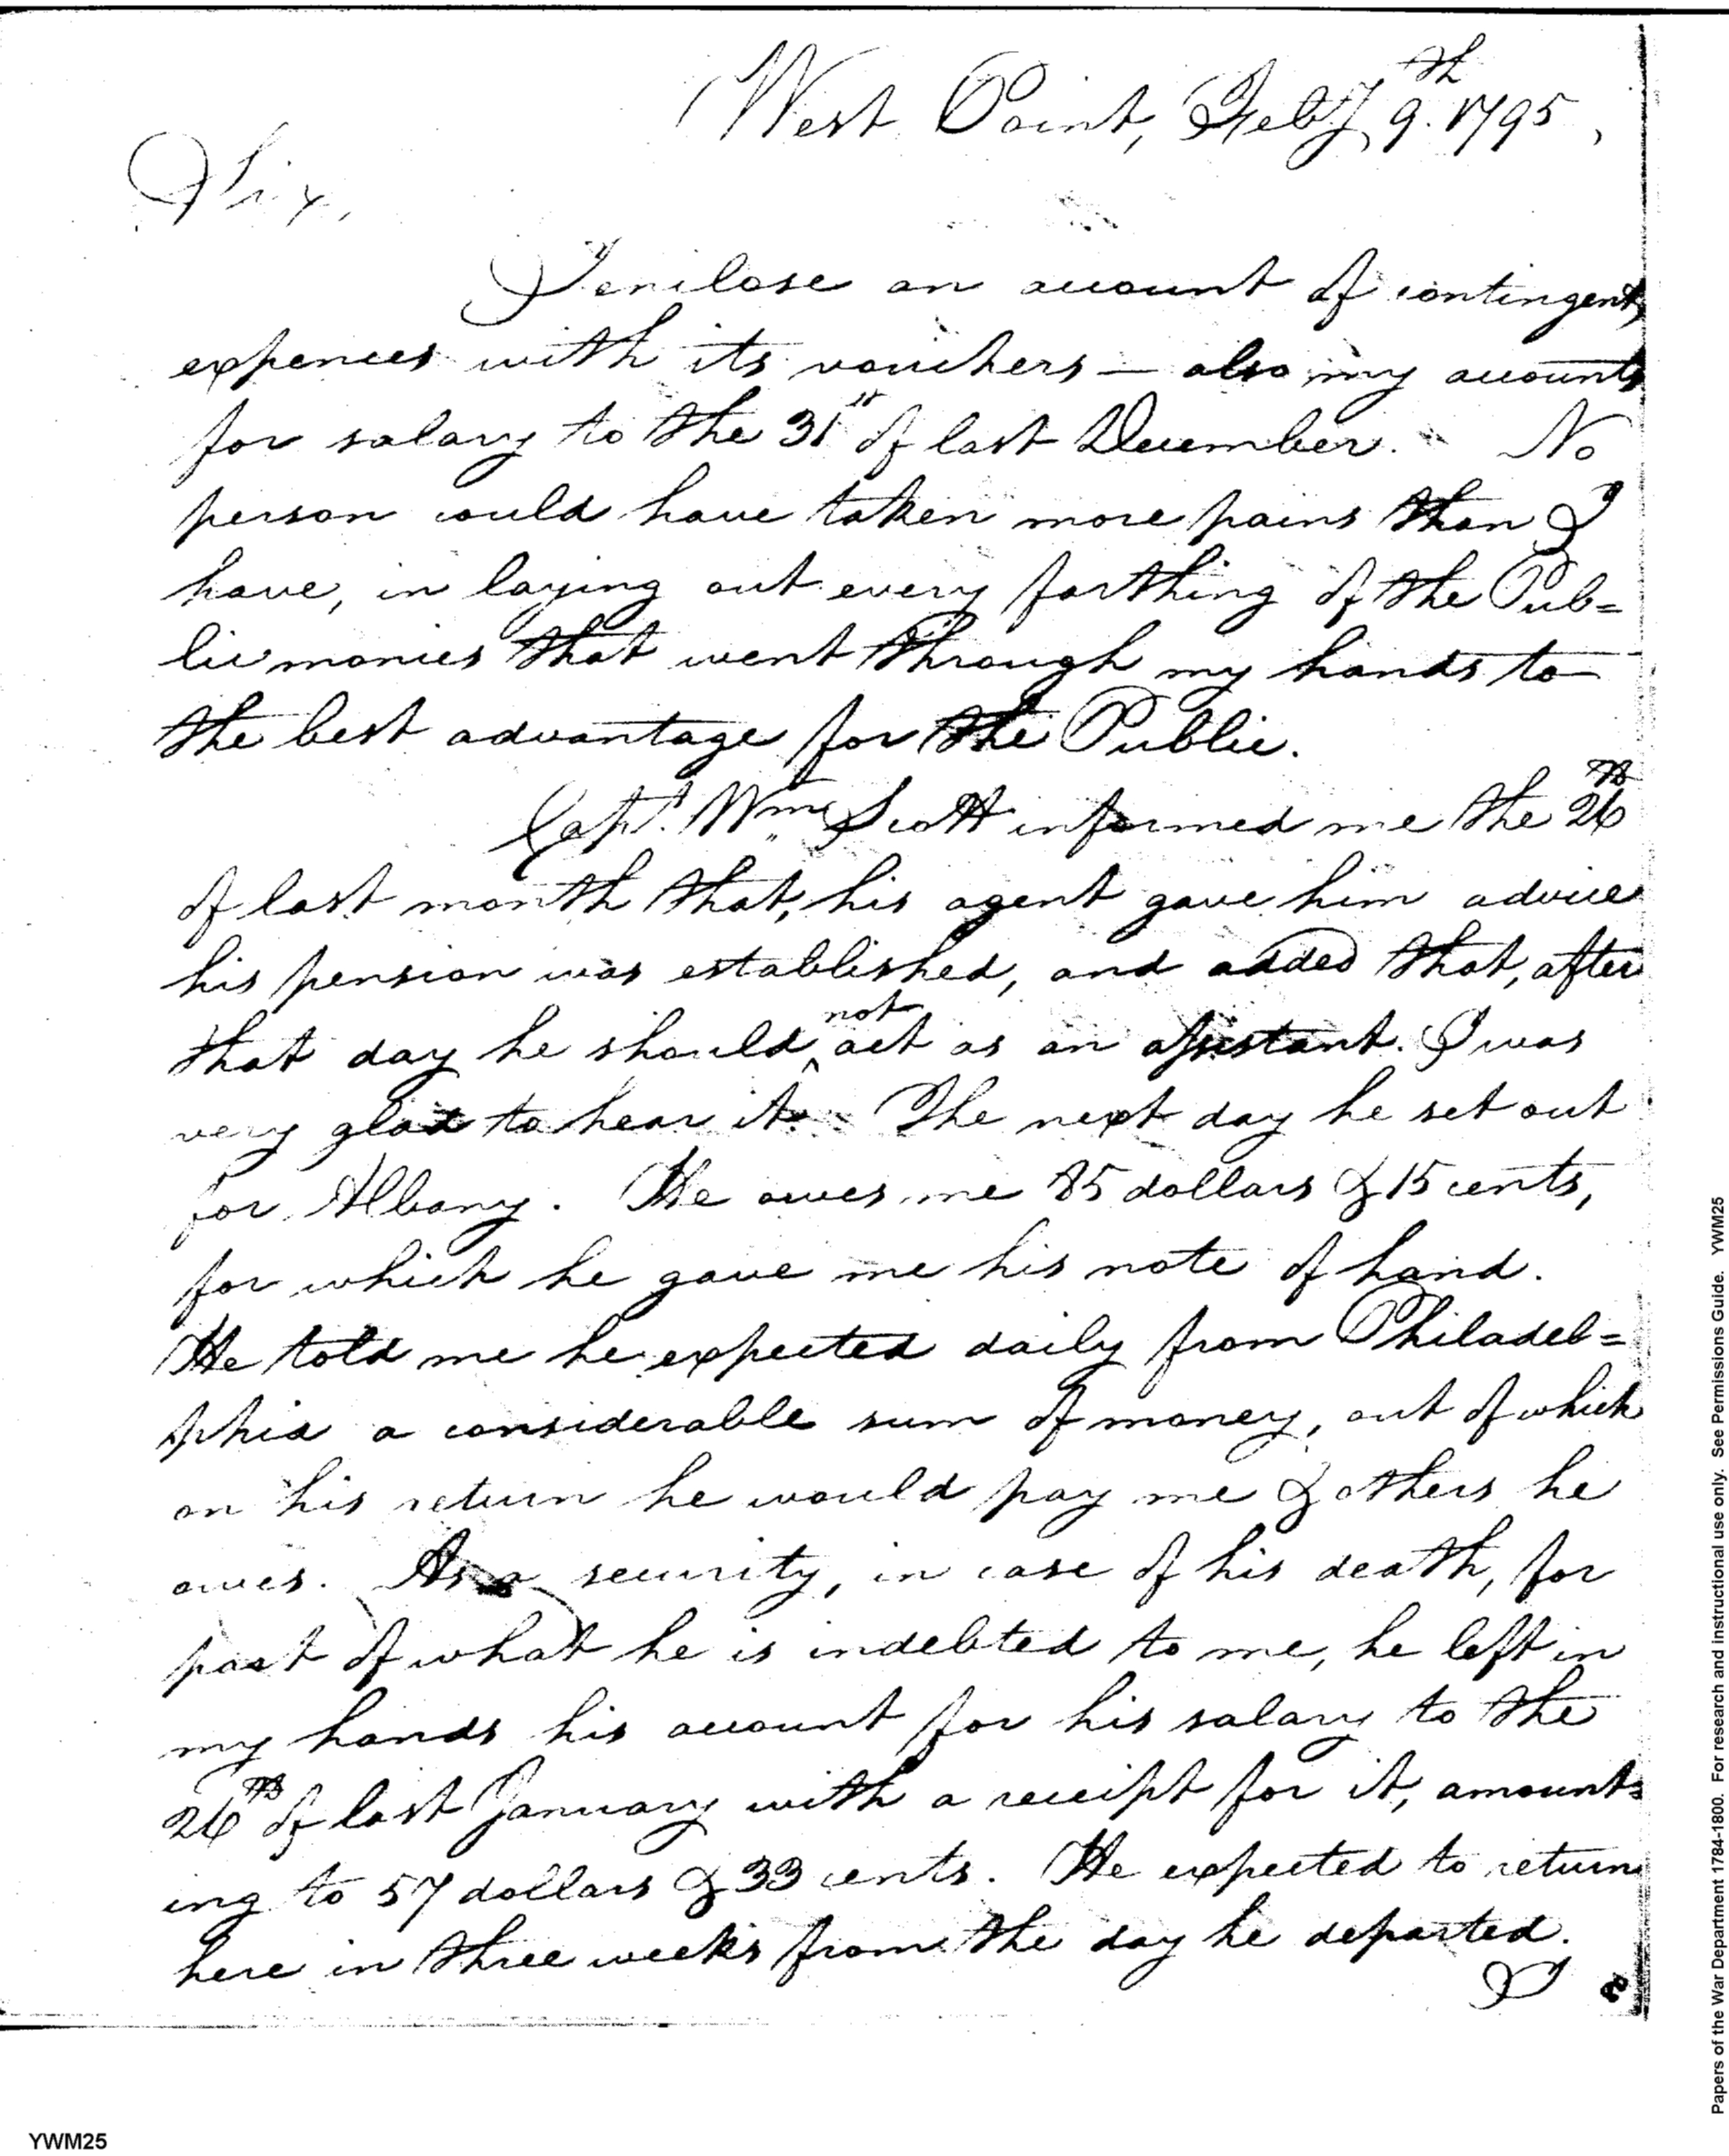 West Point, Feby 9.th 1795,
Sir,
I enclose an account of contingent
expences with its vouchers — also my accounts
for salary to the 31st of last December. No
person could have taken more pains than I
have, in laying out every farthing of the Pub=
lic monies that went through my hands to
the best advantage for the Public.
Capt. Wm. Scott informed me the 26th
of last month that, his agent gave him advice
his pension was established, and added that, after
that day he should not act as an assistant. I was
very glad to hear it. The next day he set out
for Albany. He owes me 85 dollars & 15 cents,
for which he gave me his note of hand.
He told me he expected daily from Philadel=
phia a considerable sum of money, out of which
on his return he would pay me & others he
owes. As a security, in case of his death, for
part of what he is indebted to me, he left in
my hands his account for his salary to the
26th of last January with a receipt for it, amount=
ing to 57 dollars & 33 cents. He expected to return
here in three weeks from the day he departed.
I
YWM25
Papers of the War Department 1784-1800. For research and instructional use only. See Permissions Guide. YWM25